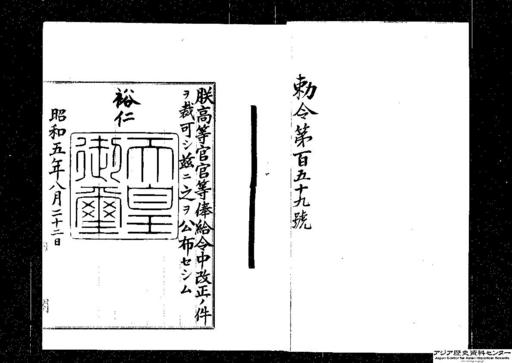 勅令第百五十九號
朕高等官官等俸給令中改正ノ件
ヲ裁可シ茲ニ之ヲ公布セシム
裕仁
天皇
御璽
昭和五年八月二十二日
アジア歴史資料センター
Japan Center for Asian Historical Records